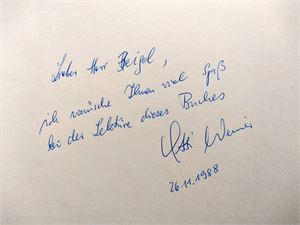 Lieber Herr Beigel,
ich wünsche Ihnen viel Spaß
bei der Lektüre dieses Buches
26.11.1988